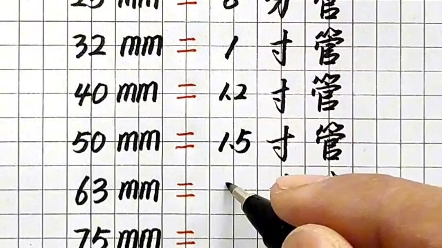 25 mm = 6 分 管
32 mm = 1 寸 管
40 mm = 1.2 寸 管
50 mm = 1.5 寸 管
63 mm =
75 mm =